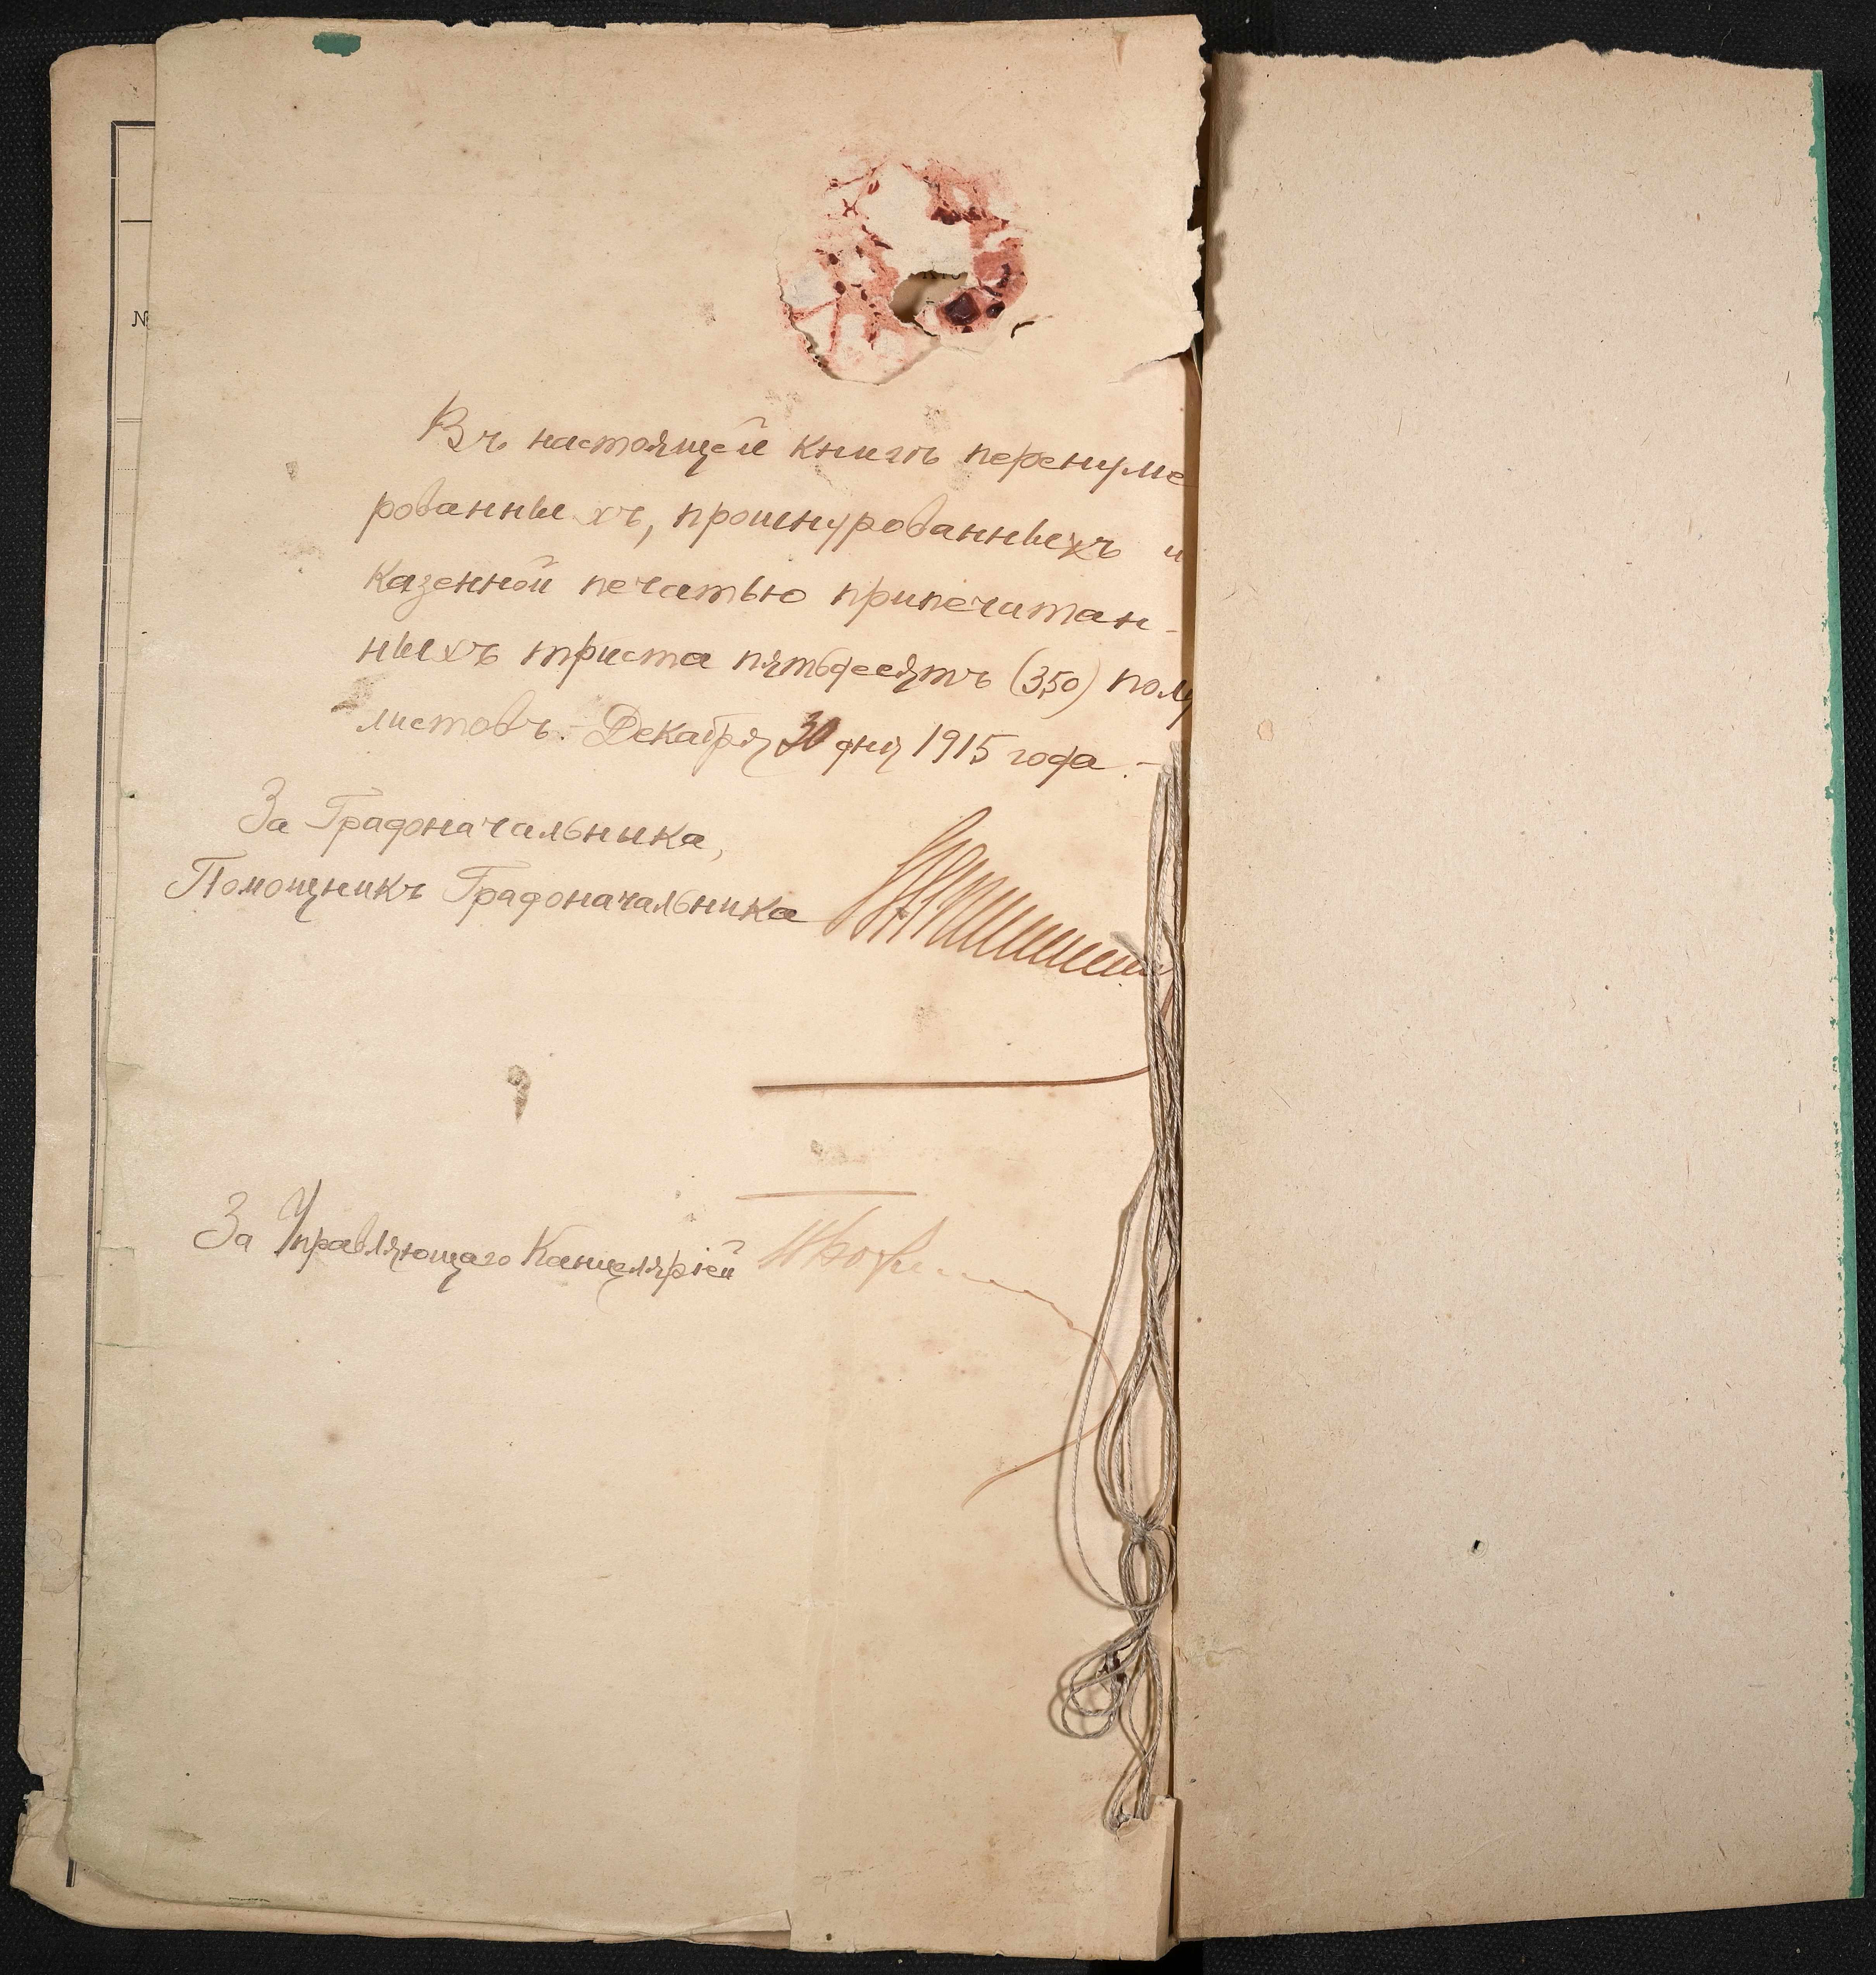 Въ настоящей книгѣ перенуме
рованныхъ, прошнурованныхъ и
казенной печатью припечатан-
ныхъ триста пятьдесятъ (350) полу
листовъ. Декабря 30 дня 1915 года.-
За Градоначальника,
Помощникъ Градоначальника
За Управляющаго Канцелярией
№